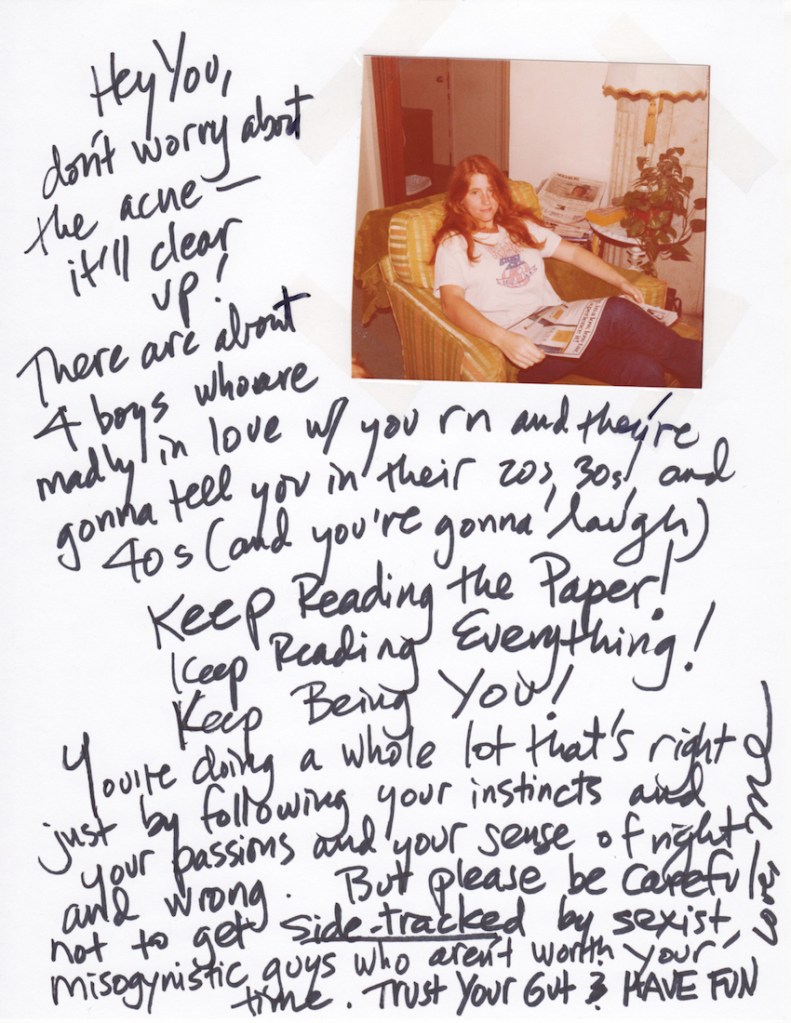 Hey You,
don't worry about
the acne —
it'll clear
up!
There are about
4 boys who are
madly in love w/ you rn and they're
gonna tell you in their 20s, 30s, and
40s (and you're gonna laugh)
Keep Reading the Paper!
Keep Reading Everything!
Keep Being You!
You're doing a whole lot that's right
just by following your instincts and
your passions and your sense of right
and wrong. But please be careful
not to get side-tracked by sexist,
misogynistic guys who aren't worth your
time. Trust Your Gut & HAVE FUN
love, me